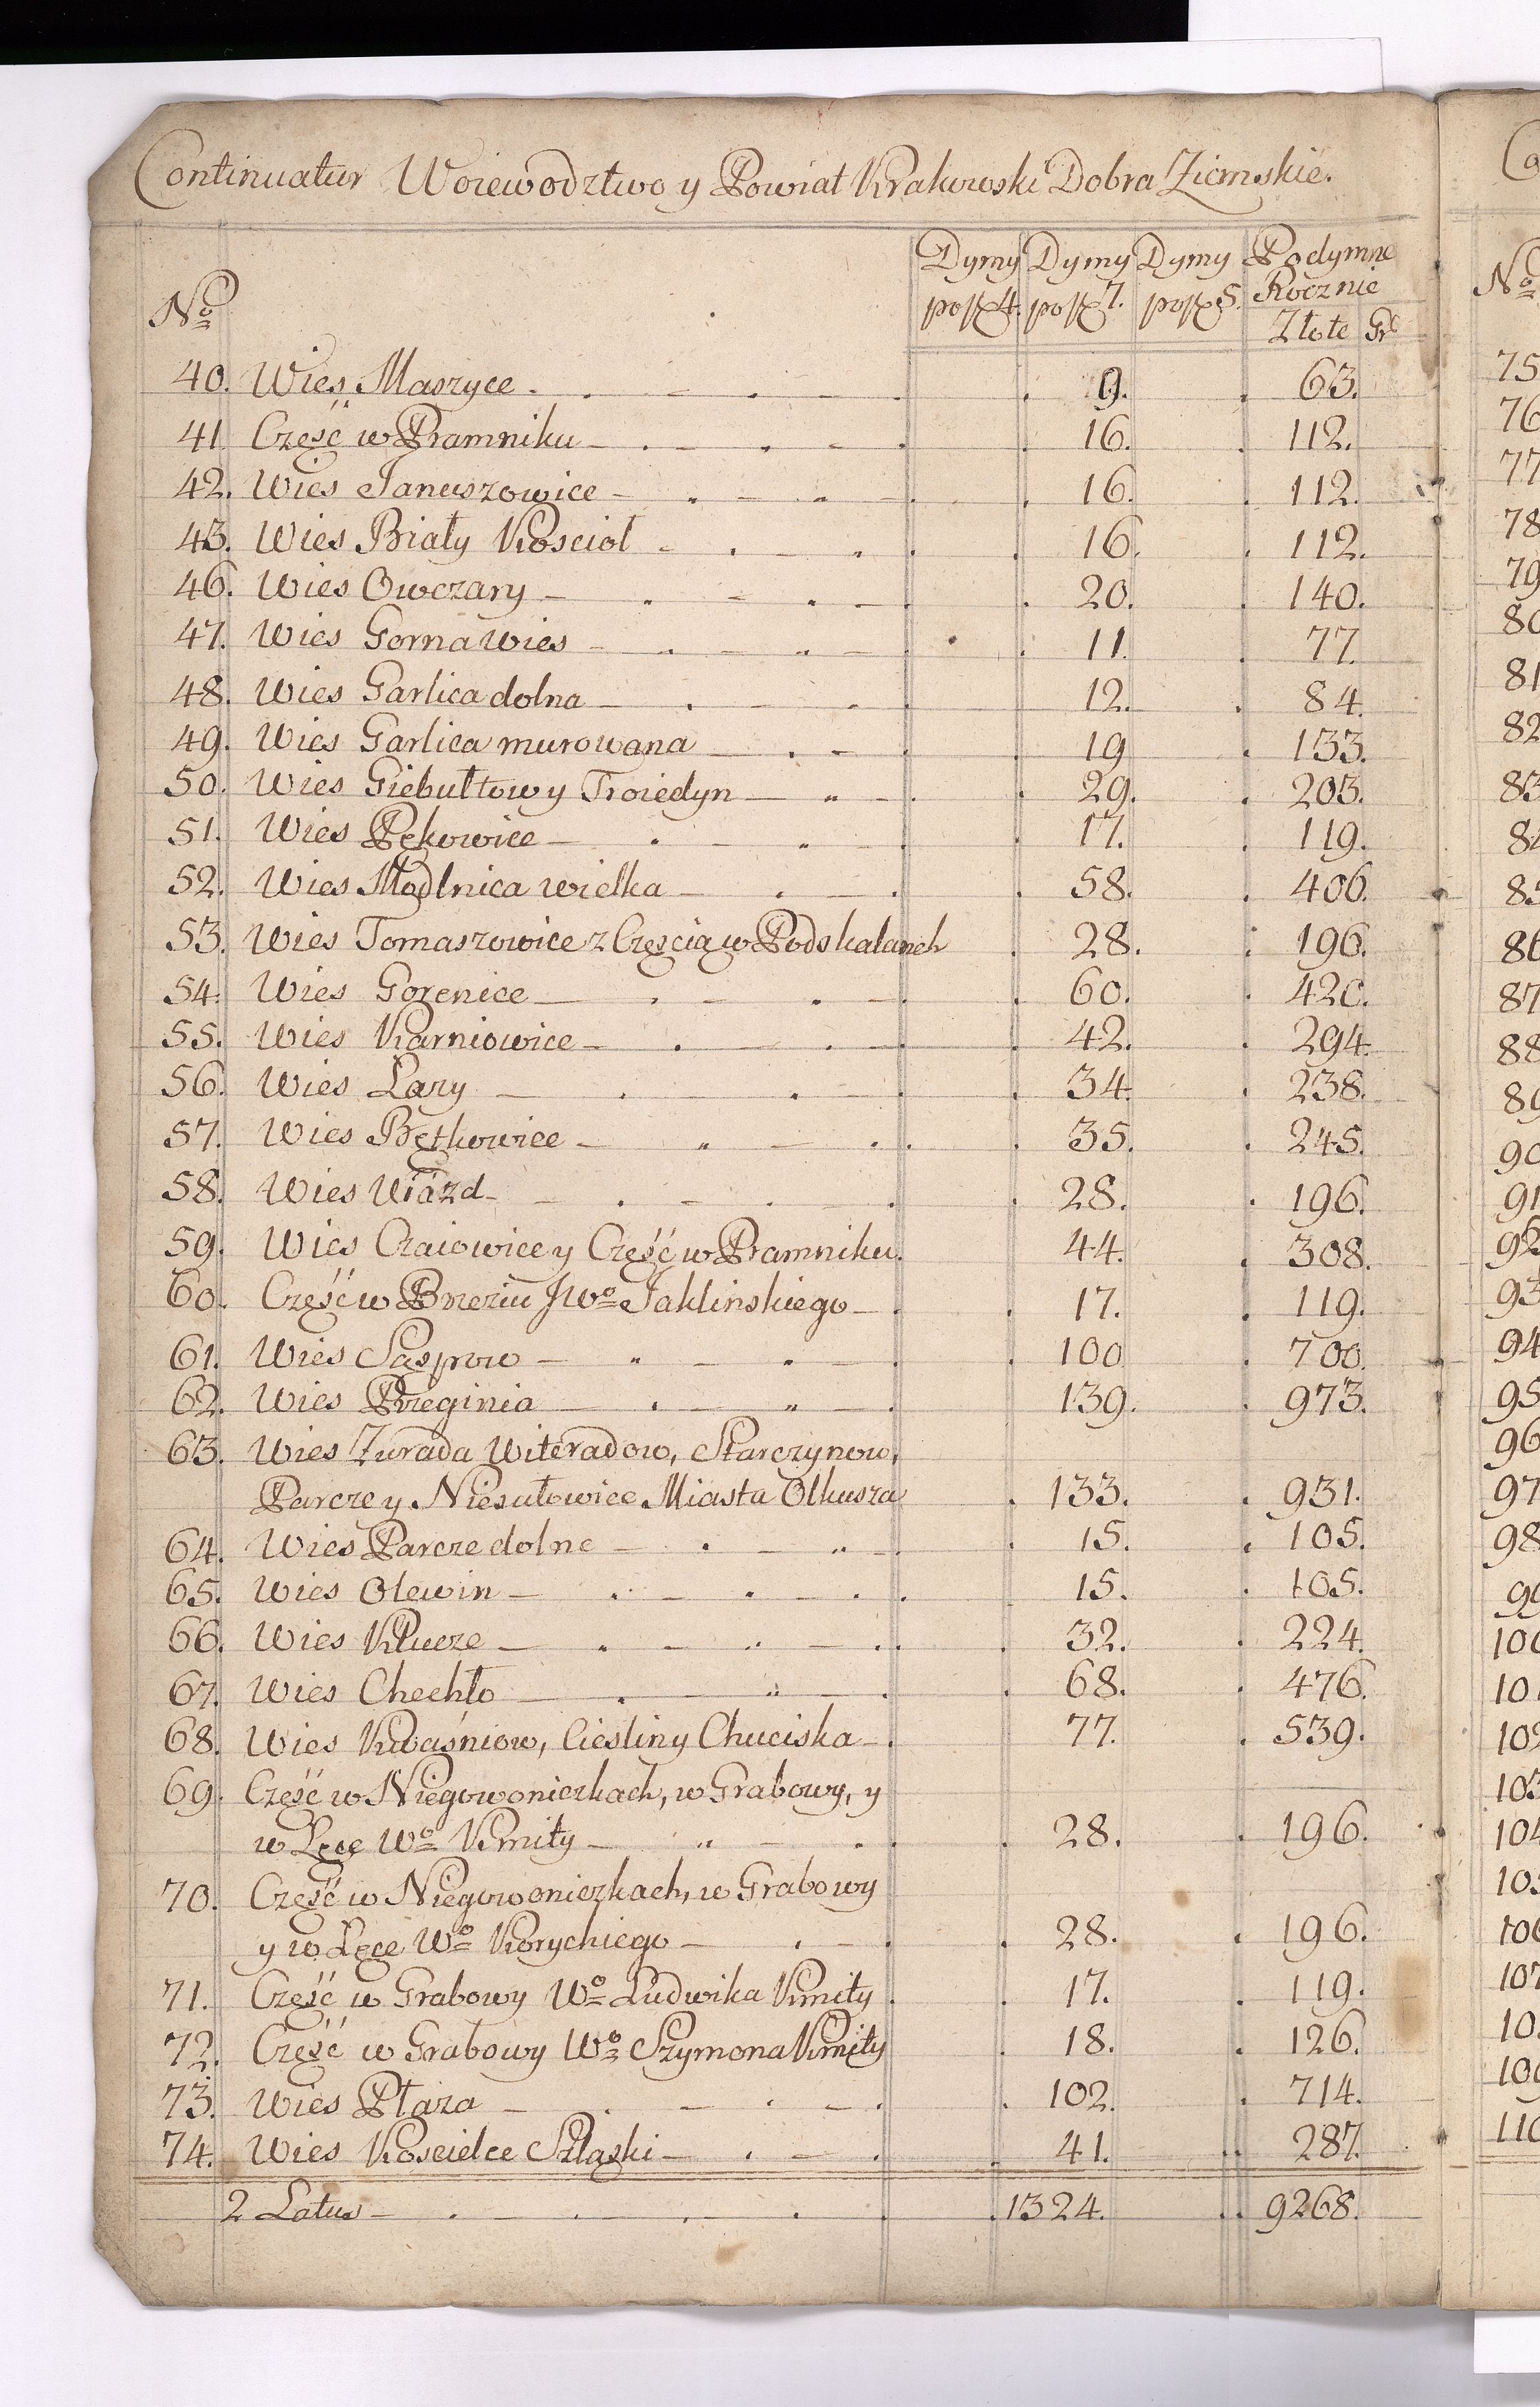 Continuatur Woiewodztwo y Powiat Krakowski Dobra Ziemskie.
No Dymy Dymy Dymy Podymne Rocznie
4. 7. 5. Złote Gr
40. Wies Maszyce 9. 63.
41 Część w Pramniku 16. 112.
42. Wies Januszowice 16. 112.
43. Wies Biały Kosciol 16. 112.
46. Wies Owczary 20. 140.
47. Wies Gorna wies 11. 77.
48. Wies Garlica dolna 12. 84.
49. Wies Garlica murowana 19 133.
50. Wies Giebułtowy Troiedyn 29. 203.
51. Wies Pękowice 17. 119.
52. Wies Modlnica wielka 58. 406.
53. Wies Tomaszowice z Częscią w Podskalanch 28. 196.
54. Wies Gorenice 60. 420.
55. Wies Karniowice 42. 294.
56. Wies Łazy 34. 238.
57. Wies Bętkowice 35. 245.
58. Wies Uiazd 28. 196.
59. Wies Czaiowice y Część w Pramniku. 44. 308.
60. Część w Brzeziu JWo Jaklinskiego 17. 119.
61. Wies Sąspow 100 700.
62. Wies Przeginia 139. 973.
63. Wies Zurada Witeradow, Starczynow,
Parcze y Niesułowice Miasta Olkusza 133. 931.
64. Wies Parcze dolne 15. 105.
65. Wies Olewin 15. 105.
66. Wies Klucze 32. 224.
67. Wies Chechło 68. 476.
68. Wies Kwaśniow, Ciesliny Chuciska 77. 539.
69. Część w Niegowoniczkach, w Grabowy, y
w Łęce Wo Kmity 28. 196.
70. Część w Niegowoniczkach, w Grabowy
y w Łęce Wo Korychiego 28. 196.
71. Część w Grabowy Wo Ludwika Kmity 17. 119.
72. Część w Grabowy Wo Szymona Kmity 18. 126.
73. Wies Płaza 102. 714.
74. Wies Koscielce Szląski 41. 287.
2 Latus 1324. 9268.
No
75
76
77
78
79
80
81
82
83
84
85
86
87
88
89
90
91
92
93
94
95
96
97
98
99
100
101
102
103
104
105
106
107
10
10
110